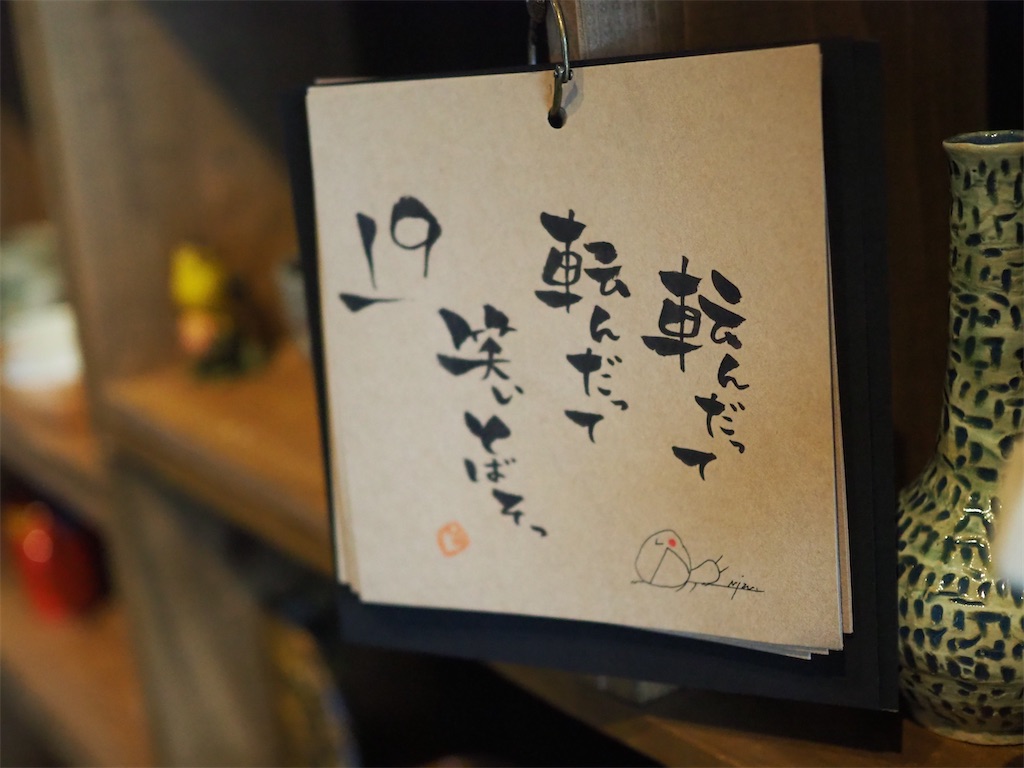 転んだって
転んだって
笑いとばそっ
19